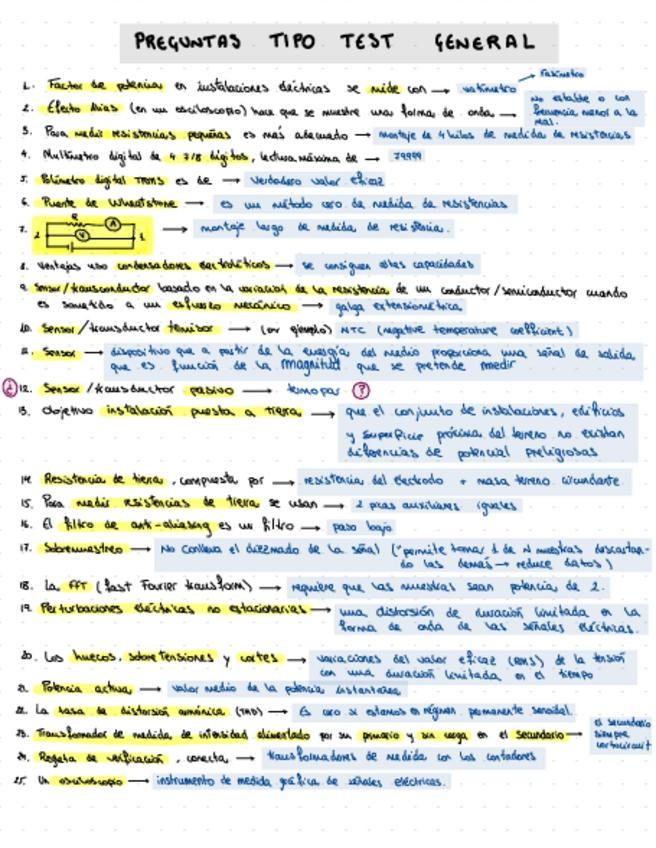 PREGUNTAS TIPO TEST GENERAL
1. Factor de potencia en instalaciones eléctricas se mide con → vatímetro → fasímetro
2. Efecto Alias (en un osciloscopio) hace que se muestre una forma de onda → no estable o con
frecuencia menor a la
real.
3. Para medir resistencias pequeñas es más adecuado → montaje de 4 hilos de medida de resistencias
4. Multímetro digital de 4 7/8 dígitos, lectura máxima de → 79999
5. Polímetro digital TRMS es de → verdadero valor eficaz
6. Puente de Wheatstone → es un método cero de medida de resistencias
7. 2 R A V 1 → montaje largo de medida de resistencia.
8. Ventajas uso condensadores electrolíticos → se consiguen altas capacidades
9. Sensor/transconductor basado en la variación de la resistencia de un conductor/semiconductor cuando
es sometido a un esfuerzo mecánico → galga extensiométrica
10. Sensor/transductor termisor → (por ejemplo) NTC (negative temperature coefficient)
11. Sensor → dispositivo que a partir de la energía del medio proporciona una señal de salida
que es función de la magnitud que se pretende medir
¿ 12. Sensor/transductor pasivo → termopar ?
13. Objetivo instalación puesta a tierra → que el conjunto de instalaciones, edificios
y superficie próxima del terreno no existan
diferencias de potencial preligrosas
14. Resistencia de tierra, compuesta por → resistencia del electrodo + masa terreno circundante
15. Para medir resistencias de tierra se usan → 2 picas auxiliares iguales
16. El filtro de anti-aliasing es un filtro → paso bajo
17. Sobremuestreo → No conlleva el diezmado de la señal ("permite tomar 1 de N muestras descartan-
do las demás → reduce datos)
18. La FFT (Fast Fourier transform) → requiere que las muestras sean potencia de 2.
19. Perturbaciones eléctricas no estacionarias → una distorsión de duración limitada en la
forma de onda de las señales eléctricas.
20. Los huecos, sobretensiones y cortes → variaciones del valor eficaz (RMS) de la tensión
con una duración limitada en el tiempo
21. Potencia activa → valor medio de la potencia instantánea
22. La tasa de distorsión armónica (THD) → Es cero si estamos en régimen permanente senoidal.
23. Transformador de medida de intensidad alimentado por su primario y sin carga en el secundario → el secundario
siempre
cortocircuit
24. Regleta de verificación, conecta → transformadores de medida con los contadores
25. Un osciloscopio → instrumento de medida gráfica de señales eléctricas.